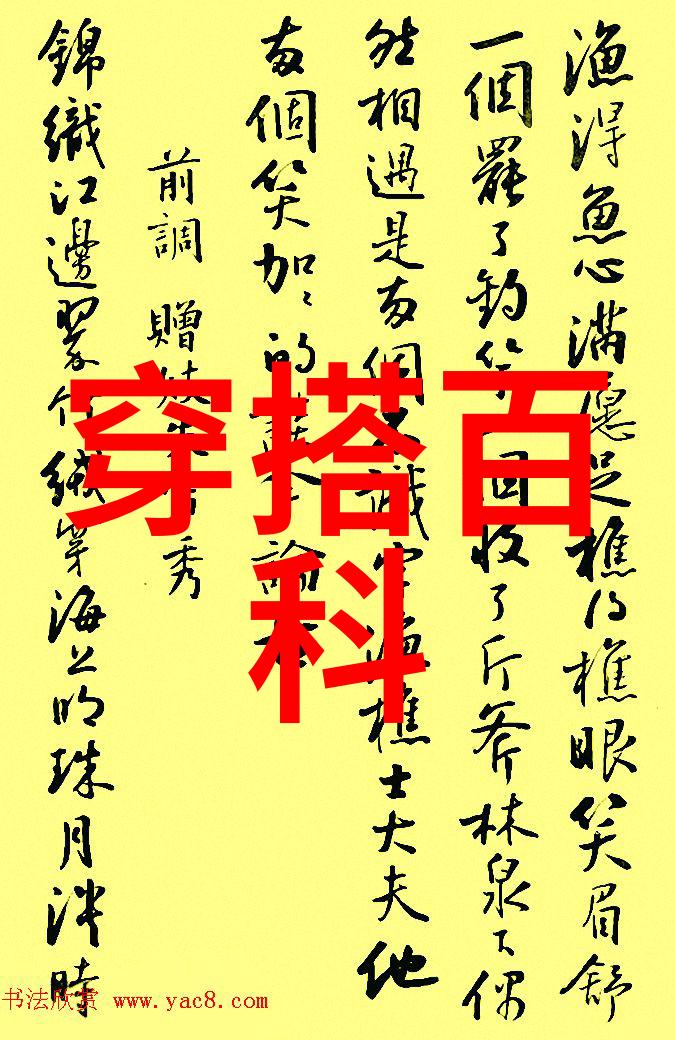 渔得鱼心满愿足樵得樵眼笑眉舒
一個罷了釣竿一個收了斤斧林泉下偶
然相遇是两個不識字漁樵士大夫他
两個笑加加的談今論古
前調 贈妓朱簾秀
錦織江邊翠竹絨穿海上明珠月淡時
穿搭百
科
书法欣赏 www.yac8.com